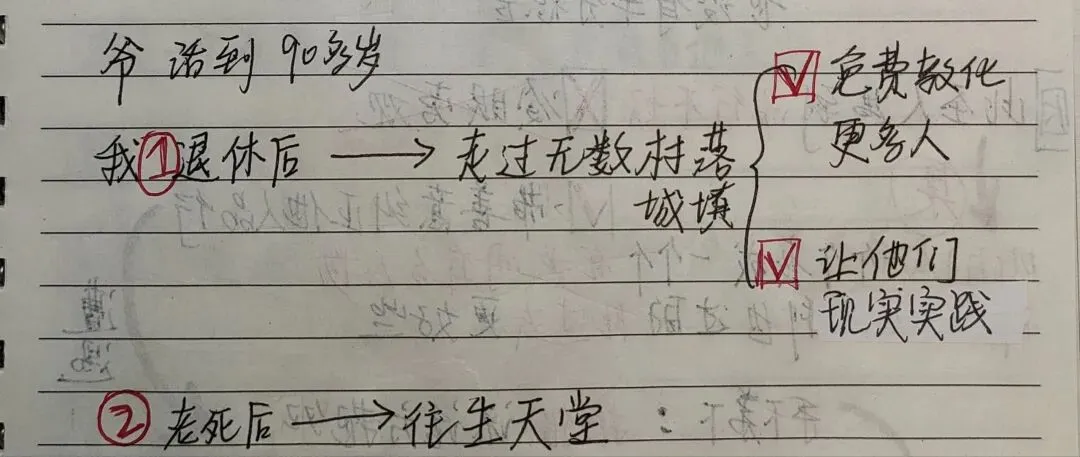 爷 活到 90多岁
我①退休后 → 走过无数村落
城填
☑ 免费教化
更多人
☑ 让他们
现实实践
② 老死后 → 往生天堂 :